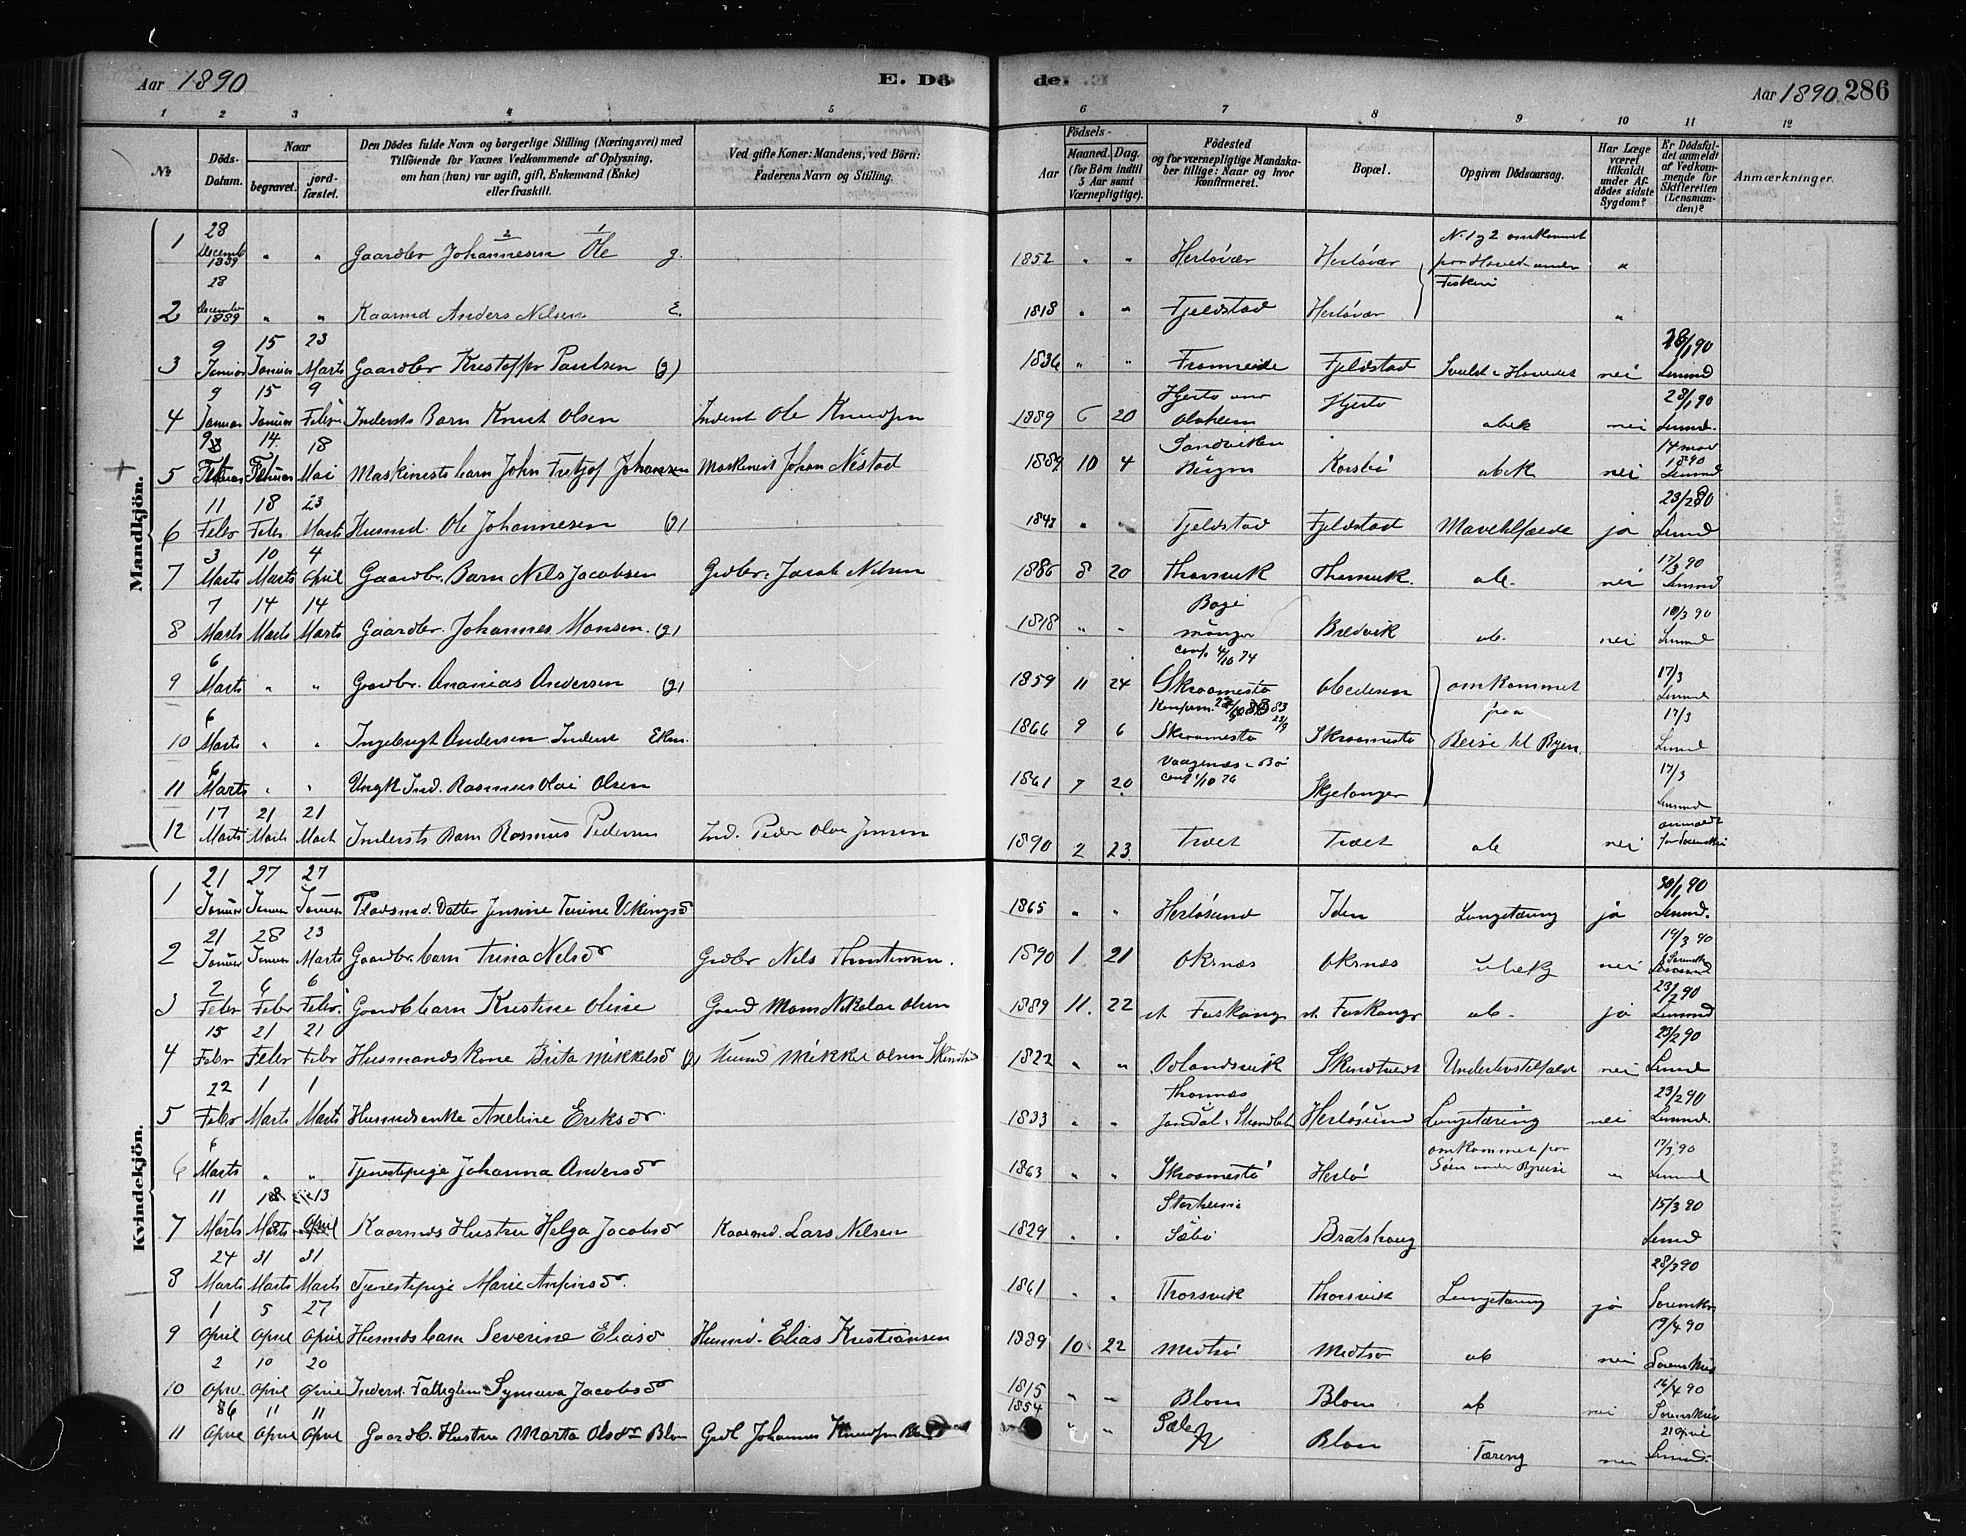 Aar 1890
E. Döde.
Aar 1890 286
1 2 3 4 5 6 7 8 9 10 11 12
№
Döds-Datum.
Naar
begravet.
jordfæstet.
Den Dödes fulde Navn og borgerlige Stilling (Næringsvei) med Tilföiende for Voxnes Vedkommende af Oplysning, om han (hun) var ugift, gift, Enkemand (Enke) eller fraskilt.
Ved gifte Koner: Mandens, ved Börn: Faderens Navn og Stilling.
Födsels-
Aar
Maaned. Dag.
(for Börn indtil 5 Aar samt Værnepligtige).
Födested og for værnepligtige Mandskaber tillige: Naar og hvor konfirmeret.
Bopæl.
Opgiven Dödsaarsag.
Har Læge været tilkaldt under Afdödes sidste Sygdom?
Er Dödsfaldet anmeldt af Vedkommende for Skifteretten (Lensmanden)?
Anmærkninger.
Mandkjön.
1 28 Decemb 1889 " " Gaardbr Johannesen Ole g. 1852 " " Herløvær Herløvær No 1 og 2 omkommet paa Havet under Fiskeri "
2 28 December 1889 " " Kaarmd Anders Nilsen E. 1818 " " Fjeldstad Herløvær "
3 9 Januar 15 Januar 23 Marts Gaardbr Kristoffer Paulsen (g) 1836 " " Fromreide Fjeldstad nei 28/1 90 Lensmd
4 9 Januar 15 Januar 9 Febr Indersts Barn Knut Olsen Inderst Ole Knudsen 1889 6 20 Hjertø Hjertø ubek nei 28/1 90 Lensmd.
5 Februar 14 Februar 18 Mai Maskinists barn John Fritjof Johansen Maskinist Johan Nistad 1889 10 4 Sandviken Bergen Korsbø ubek nei 14 mar 1890 Lensmd
6 11 Febr 18 Febr 23 Marts Husmd Ole Johannesen (g) " " Fjeldstad Fjeldstad Mavetilfælde ja 23/2 90 Lensmd
7 3 Marts 10 Marts 4 April Gaardbr. Barn Nils Jacobsen Grdbr. Jacob Nilsen 1886 8 20 Thorsvik Thorsvik. ub. nei 17/3 90 Lensmd
8 7 Marts 14 Marts 14 Marts Gaardbr. Johannes Monsen (g) 1818 " " Manger Bredvik ub. nei 10/3 90 Lensmd
9 6 Marts " " Gaardbr. Ananias Andersen (g) 1859 11 24 conf. 4/10 74 Skroomestø omkommet paa Reise til Byen 17/3 Lensmd
10 6 Marts " " Ingebrigt Andersen Inderst Ekm. 1866 9 6 Skroomestø Skroomestø 17/3 Lensmd
11 6 Marts " " Ungk. Ind. Rasmus Olai Olsen 1861 7 20 Vaagenæs i Bø conf. 1/10 76 Skjelanger 17/3 Lensmd
12 17 Marts 21 Marts 21 Mart Inderts Barn Rasmus Pedersen Ind. Peder Olai Jensen 1890 2 23 Træet Træet ub nei anmeldt for Sorenskri
Kvindekjön.
1 21 Januar 27 Januar 27 Januar Pladsmd. Datter Jensine Vikingsd 1865 " " Herløsund Iden Lungetæring ja 30/1 90 Lensmd.
2 21 Januar 28 Januar 23 Marts Gaardbr. barn Trina Nelsd Grdbr Nils 1890 1 21 Oksnæs Oksnæs ubek nei 19/3 90
3 2 Febr 6 Febr 6 Febr. Gaardb barn Kristine Oline Mons Nikolai Olsen 1889 11. 22 ub. ja 23/2 90 Lensmd
4 15 Febr 21 Febr 21 Febr Husmands Kone Brita Mikkelsd (g) Husmd Mikkel Olsen 1822 " " Underlivstilfælde nei 23/2 90 Lensmd
5 22 Febr 1 Marts 1 Marts Husmdsenke Axeline Eriksd. 1833 " " Herløsund Lungetæring nei 23/2 90 Lensmd.
6 6 Marts " " Tjenestepige Johanna Andersd 1863 " " Skroomestø Herlø omkommet paa Søen under Byreise " 17/3 90 Lensmd
7 11 Marts 18 Marts 13 April Kaarmds Hustru Helga Jacobsd Kaarmd. Lars Nilsen 1829 " " Storheim Sæbø Bratshaug 15/3 90 Lensmd
8 24 Marts 31 Marts 31 Marts Tjenestepige Marie Anfinsd. 1861 " " Thorsvik Thorsvik Lungetæring ja 28/3 90 Sorenskr
9 1 April 5 April 27 April Husmds barn Severine Eliasd Husmd. Elias Kristiansen 1889 10 22 Midtsø Midtsø ub nei 19/4 90 Sorenskri
10 2 April 10 April 20 April Inderst. Fattiglem Synneva Jacobsd 1815 " " Blom Blom ub nei 16/4 90 Sorenskri
11 April 11 April 11 April Gaardb. Hustru Marta Olsdr Blom Grdb Johannes Knudsen 1854 " " Blom Tæring nei 21 April Lensmd.